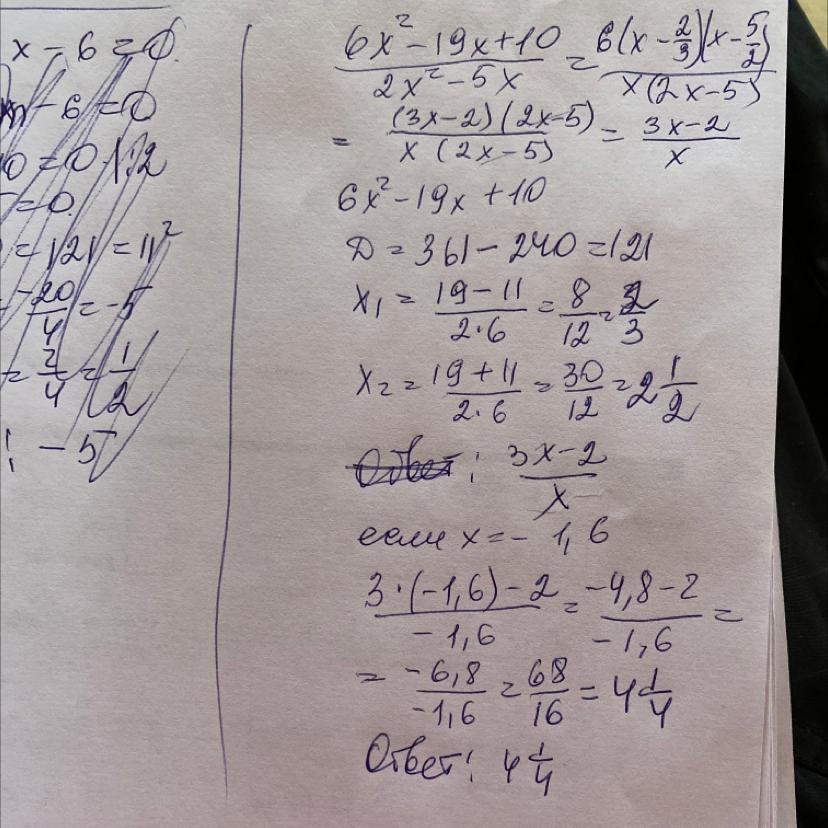 x − 6 = 0
− 6 = 0
0 = 0 |:2
= 0
= 121 = 11²
-20/4 = −5
= 2/4 = 1/2
: −5
(6x² − 19x + 10)/(2x² − 5x) = 6(x − 2/3)(x − 5/2)/(x(2x − 5))
= (3x − 2)(2x − 5)/(x(2x − 5)) = (3x − 2)/x
6x² − 19x + 10
D = 361 − 240 = 121
x₁ = (19 − 11)/(2·6) = 8/12 = 2/3
x₂ = (19 + 11)/(2·6) = 30/12 = 2 1/2
Ответ: (3x − 2)/x
если x = − 1,6
(3·(−1,6) − 2)/(−1,6) = (−4,8 − 2)/(−1,6) =
= (−6,8)/(−1,6) = 68/16 = 4 1/4
Ответ: 4 1/4